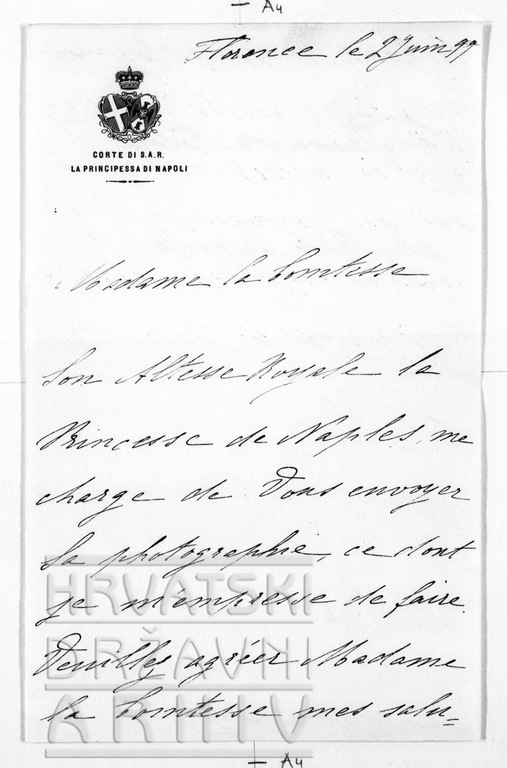 A4
Florence le 2 Juin 99
CORTE DI S.A.R.
LA PRINCIPESSA DI NAPOLI
Madame la Comtesse
Son Altesse Royale la
Princesse de Naples, me
charge de Vous envoyer
Sa photographie, ce dont
je m'empresse de faire.
Veuillez agréer Madame
la Comtesse mes salu=
HRVATSKI
DRŽAVNI
ARHIV
A4